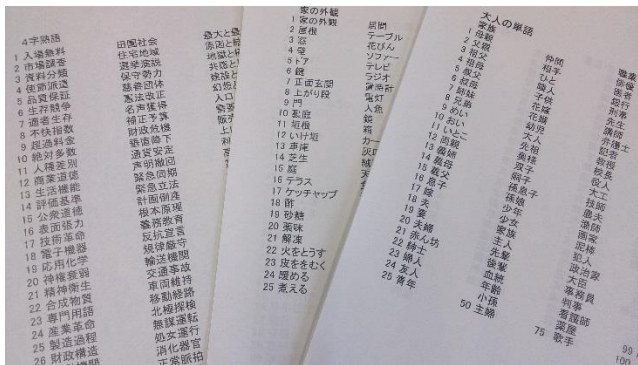 4字熟語
1 入場無料
2 市場調査
3 資料分類
4 使節派遣
5 品質保証
6 生存競争
7 適者生存
8 不快指数
9 超過料金
10 絶対多数
11 人種差別
12 商業道徳
13 生活機能
14 評価基準
15 公衆道徳
16 表面張力
17 技術革命
18 電子機器
19 応用化学
20 神権衰弱
21 精神衛生
22 合成物質
23 専門用語
24 産業革命
25 製造過程
26 財政構造
田園社会
住宅地域
選挙演説
保守勢力
慈善団体
憲法改正
名声獲得
補正予算
財政危機
垂直降下
通貨安定
声明撤回
緊急立法
計画倒産
根本原理
義務教育
反抗宣言
規律厳守
輸送機関
交通事故
車両維持
移動経路
北極探検
無謀運転
処女運行
消化器官
正常脈拍
家の外観
1 家の外観
2 屋根
3 窓
4 壁
5 ドア
6 鏡
7 正面玄関
8 上がり段
9 門
10 裏庭
11 垣根
12 いけ垣
13 車庫
14 芝生
15 庭
16 テラス
17 ケッチャップ
18 酢
19 砂糖
20 薬味
21 解凍
22 火をとうす
23 皮ををむく
24 暖める
25 煮える
居間
テーブル
花びん
ソファー
テレビ
ラジオ
置時計
電灯
人魚
大人の単語
家族
1 母親
2 父親
3 祖父
4 祖母
5 叔父
6 叔母
7 姉妹
8 兄弟
9 めい
10 おい
11 いとこ
12 両親
13 義姉
14 義母
15 義父
16 息子
17 嫁
18 夫
19 妻
20 夫婦
21 赤ん坊
22 紳士
23 婦人
24 友人
25 青年
仲間
相手
ひと
人
子供
花嫁
幼児
大人
先祖
奥様
双子
孫息子
孫娘
少年
少女
家族
主人
先輩
後輩
血統
年齢
小孫
50 主婦
職業
俳優
医者
銀行
刑事
先生
講師
弁護士
記者
著者
校長
役人
大工
技師
農夫
漁師
画家
泥棒
犯人
政治家
大臣
事務員
判事
看護師
薬屋
75 歌手
99
100